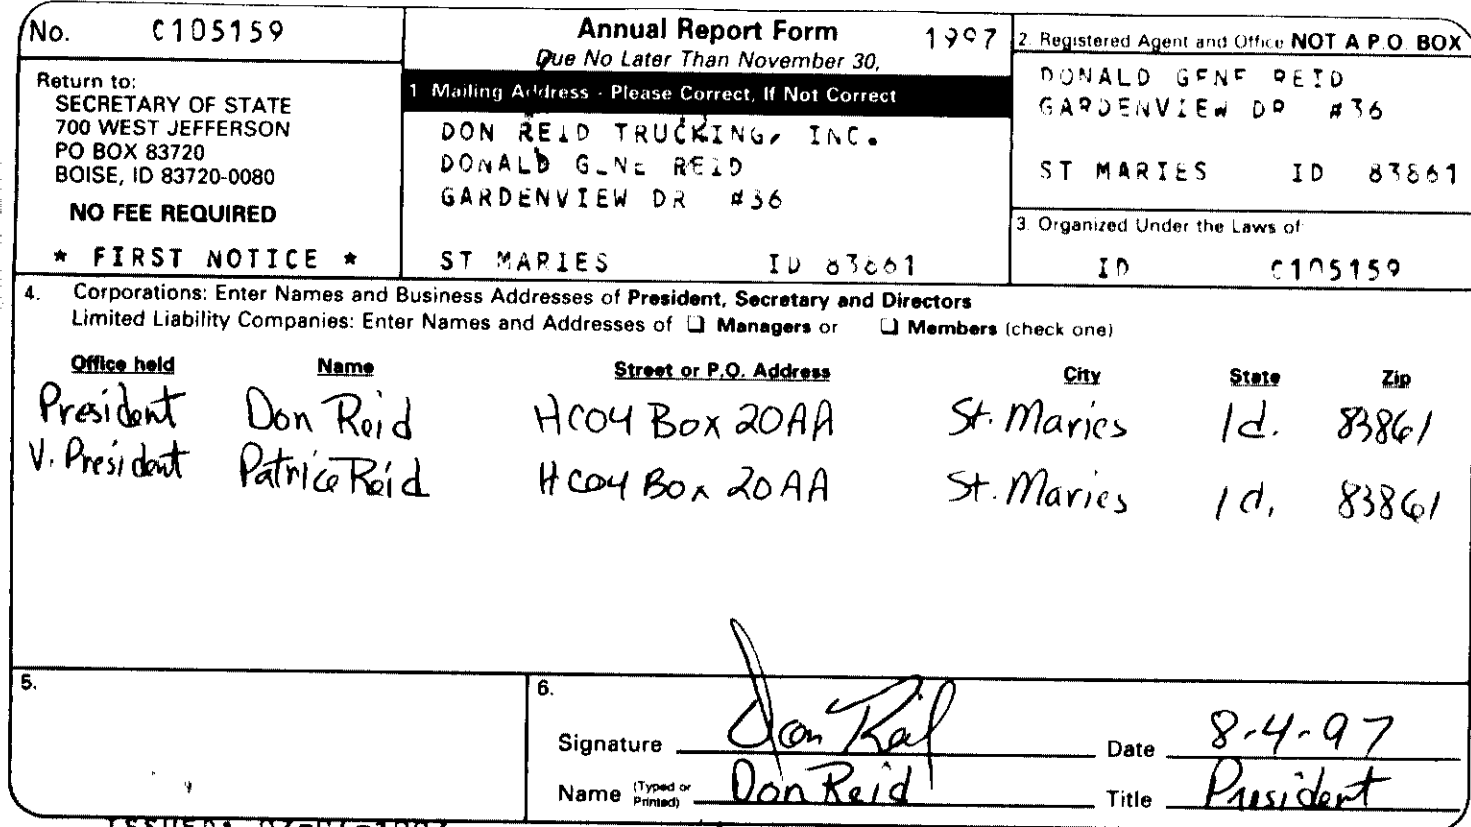 No. C105159
Annual Report Form 1997
Due No Later Than November 30,
Return to:
SECRETARY OF STATE
700 WEST JEFFERSON
PO BOX 83720
BOISE, ID 83720-0080
NO FEE REQUIRED
* FIRST NOTICE *
1 Mailing Address - Please Correct, If Not Correct
DON REID TRUCKING, INC.
DONALD GENE REID
GARDENVIEW DR #36
ST MARIES ID 83861
2. Registered Agent and Office NOT A P.O. BOX
DONALD GENE REID
GARDENVIEW DR #36
ST MARIES ID 83861
3. Organized Under the Laws of
ID C105159
4. Corporations: Enter Names and Business Addresses of President, Secretary and Directors
Limited Liability Companies: Enter Names and Addresses of ☐ Managers or ☐ Members (check one)
Office held Name Street or P.O. Address City State Zip
President Don Reid HC04 Box 20AA St. Maries Id. 83861
V. President Patrice Reid HC04 Box 20AA St. Maries Id. 83861
5.
6.
Signature Don Reid Date 8-4-97
Name (Typed or Printed) Don Reid Title President